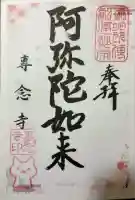 奉拝
阿弥陀如来
専念寺